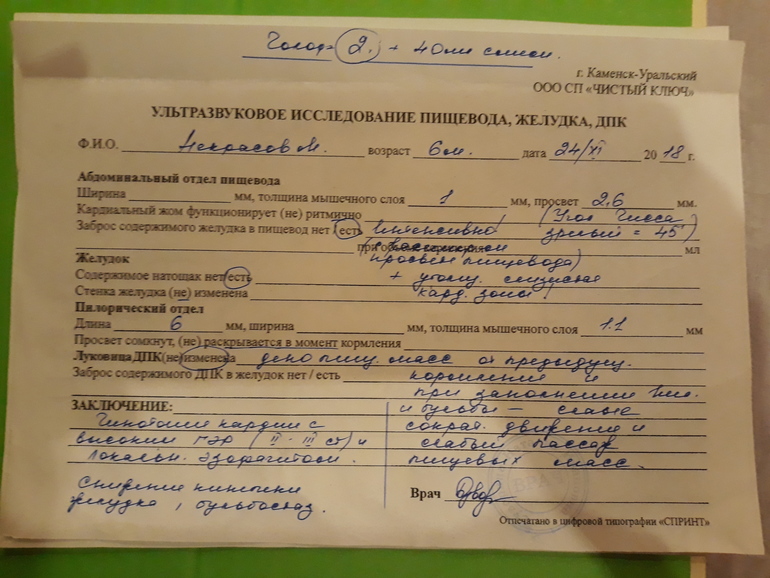 Голод 2. + 40мл смеси.
г. Каменск-Уральский
ООО СП «ЧИСТЫЙ КЛЮЧ»
УЛЬТРАЗВУКОВОЕ ИССЛЕДОВАНИЕ ПИЩЕВОДА, ЖЕЛУДКА, ДПК
Ф.И.О. Некрасов М. возраст 6 м. дата 24/XI 2018 г.
Абдоминальный отдел пищевода
Ширина мм, толщина мышечного слоя 1 мм, просвет 2,6 мм.
Кардиальный жом функционирует (не) ритмично (Угол Гисса
Заброс содержимого желудка в пищевод нет / есть Интенсивно зрелый = 45°)
при объеме мл
Желудок просвет пищевода)
Содержимое натощак нет/есть + утолщ. слизистая
Стенка желудка (не) изменена кард. зоны!
Пилорический отдел
Длина 6 мм, ширина мм, толщина мышечного слоя 1.1 мм
Просвет сомкнут, (не) раскрывается в момент кормления
Луковица ДПК (не) изменена депо пищ. масс от предыдущ.
Заброс содержимого ДПК в желудок нет / есть кормления и
при заполнении жел.
ЗАКЛЮЧЕНИЕ: и бульбы – слабые
Гипотония кардии с сократ. движения и
высоким ГЭР (II – III ст) и слабый пассаж
локальн. эзофагитом. пищевых масс.
Снижение кинетики
желудка, бульбостаз.
Врач
Отпечатано в цифровой типографии «СПРИНТ»